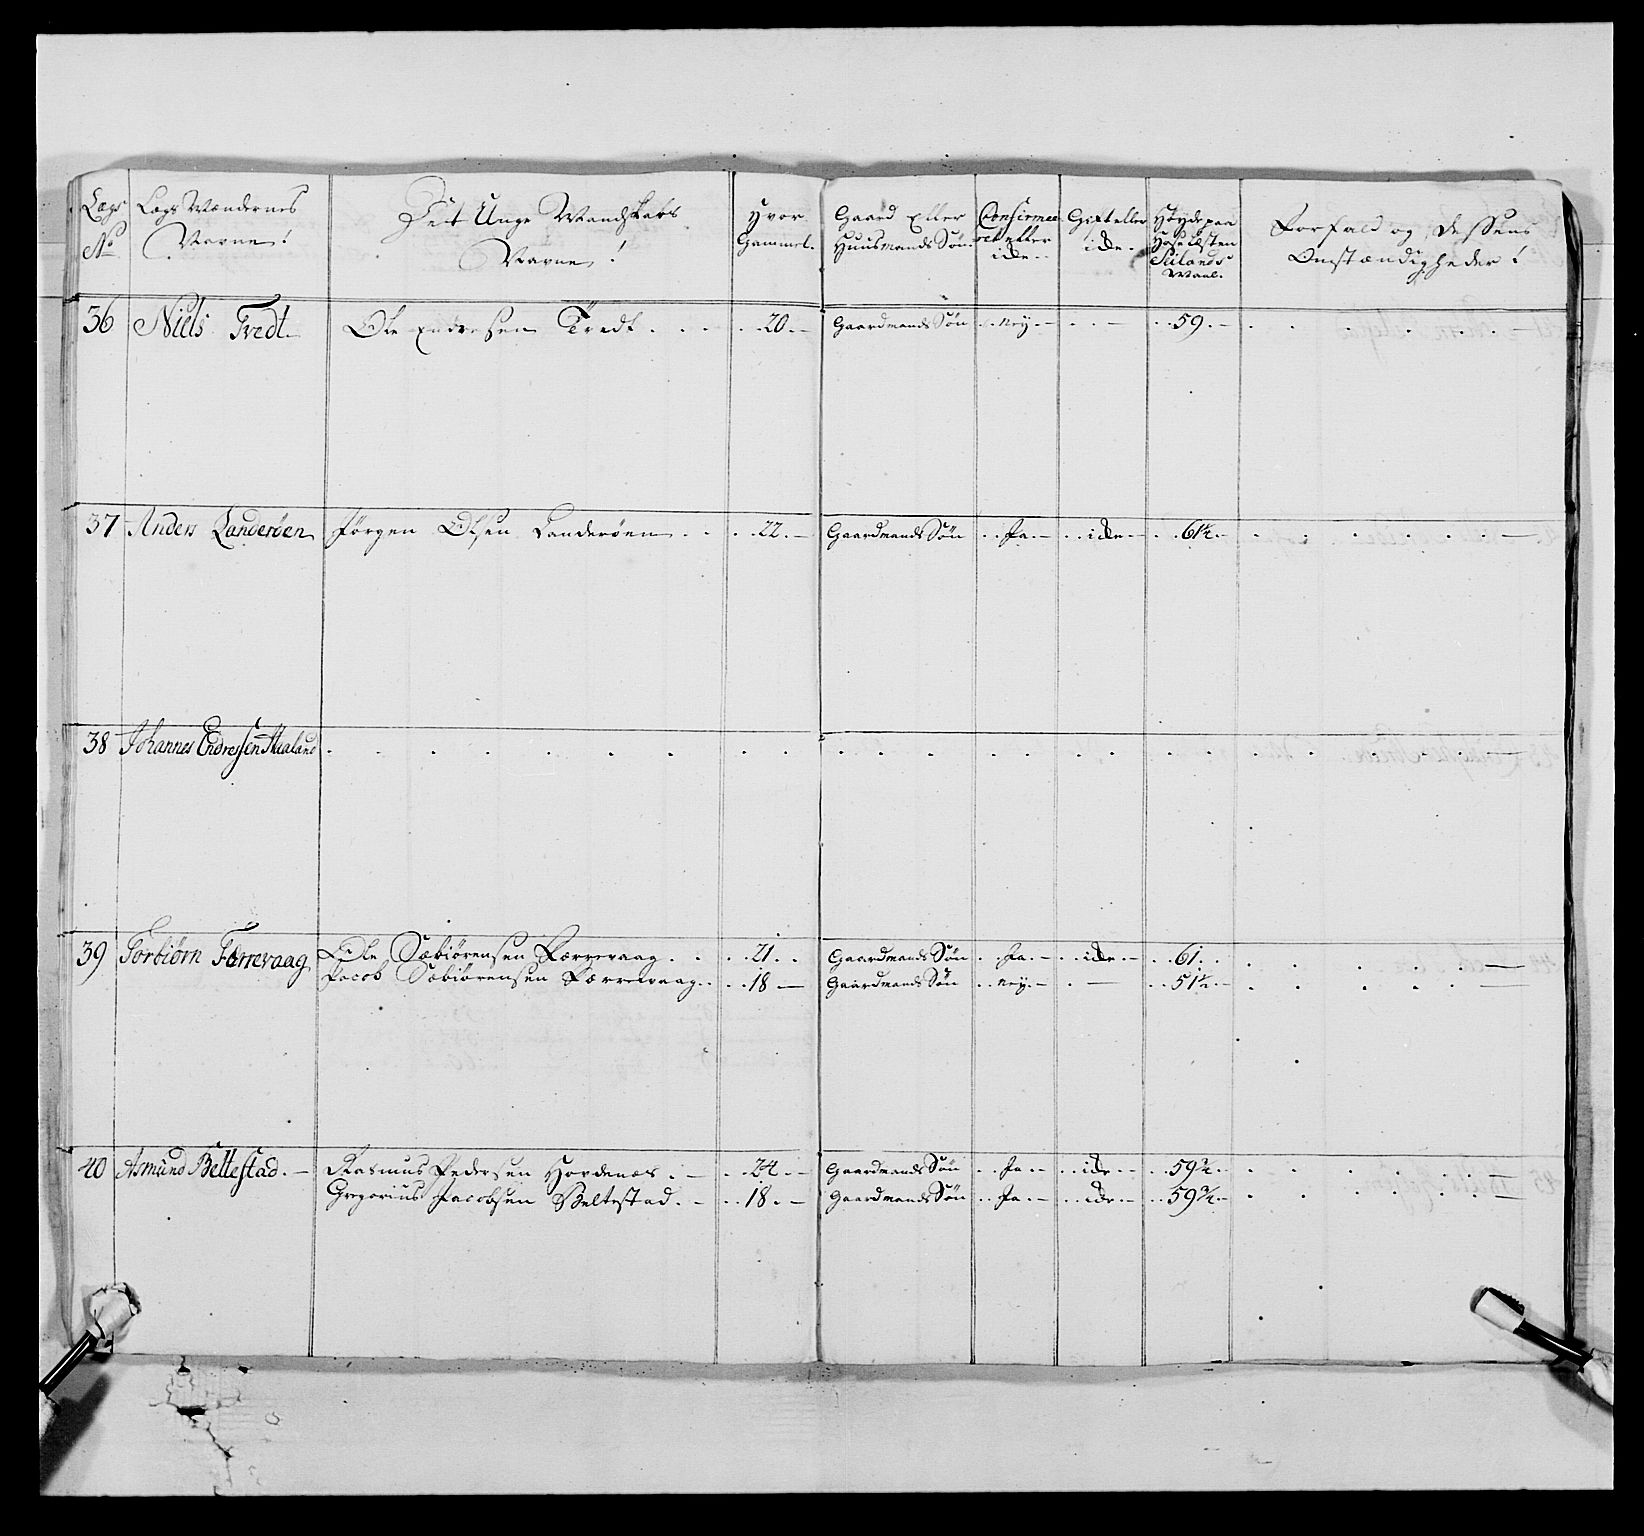 Lægs No Lægs Mændernes Navne! Det Unge Mandskabs Navne! Hvor Gammel. Gaard Eller Huusmands Søn Confirmeret eller icke Gift eller icke. Høyde paa Hose Lesten Seilands Maal. Forfald og dessens Omstændigheder!
36 Niels Tredt Ole Endresen Tredt . . . 20. Gaardmands Søn . . ney . . — . . 59. —
37 Anders Landerøen Jørgen Olsen Landerøen . . . 22. — Gaardmands Søn . . Ja . — . . icke . — . . 61½ —
38 Johannes Endressen
39 Torbiørn Færrevaag Ole Sæbiørensen Færrevaag . . . 21 . . Gaardmands Søn . . Ja . — . . icke . — . . 61 . .
Jacob Sæbiørensen Færrevaag . . . 18 — Gaardmands Søn . . ney . — . — . . 51½ —
40 Asmund Beltestad . — Rasmus Pedersen Hovdenæs . — . . 24 . — Gaardmands Søn . . Ja . — . . icke . — . . 59¾ —
Gregorius Jacobsen Beltestad . — . . 18 . — Gaardmands Søn . . Ja . — . . icke . — . . 59¾ —